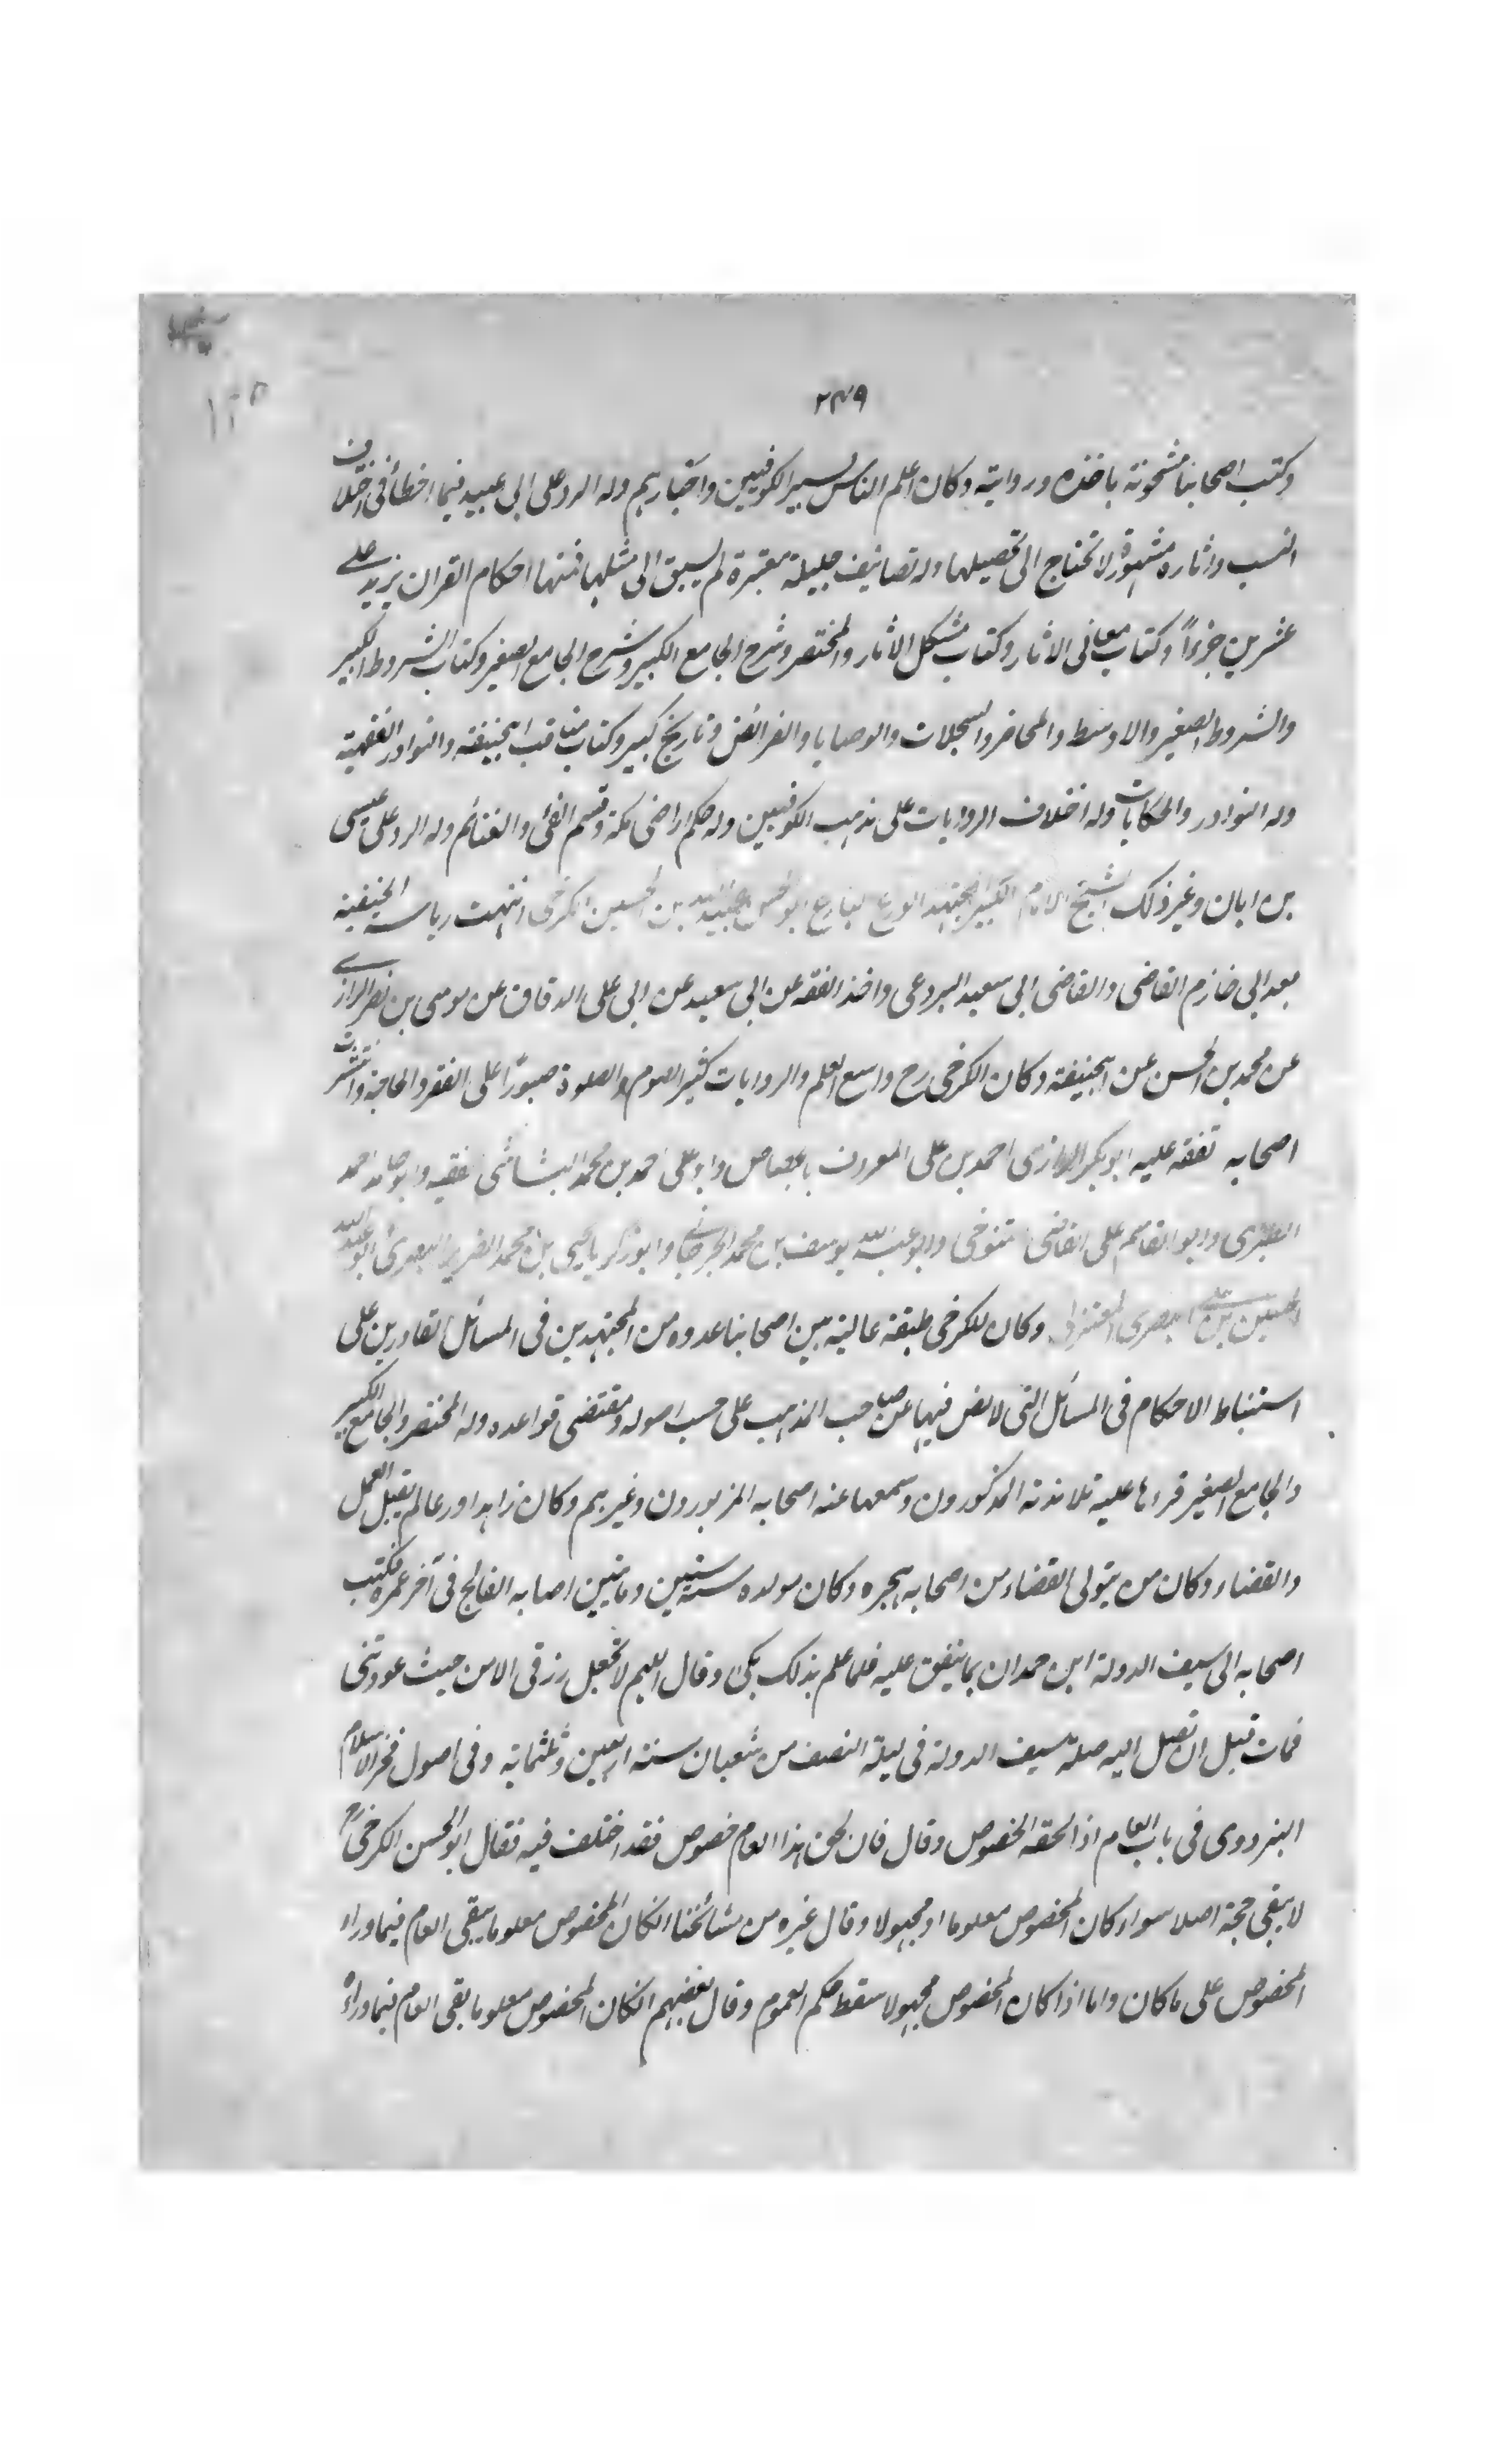 ٢٤٩
وكتب اصحابنا مشحونة باخذه وروايته وكان اعلم الناس بسير الكوفيين واخبارهم وله الرد على ابى عبيد فيما اخطأ فى اختلاف
النسب واثاره مشهورة لا تحتاج الى تحصيلها وله تصانيف جليلة معتبرة لم يسبق الى مثلها فمنها احكام القران يزيد على
عشرين جزءاً وكتاب معانى الاثار وكتاب مشكل الاثار والمختصر وشرح الجامع الكبير وشرح الجامع الصغير وكتاب الشروط الكبير
والشروط الصغير والاوسط والمحاضر والسجلات والوصايا والفرائض وتاريخ كبير وكتاب مناقب ابيحنيفة والنوادر الفقهية
وله النوادر والحكايات وله اختلاف الروايات على مذهب الكوفيين وله حكم اراضى مكة وقسم الفئ والغنائم وله الرد على عيسى
بن ابان وغير ذلك الشيخ الامام الكبير المجتهد الورع البارع ابو الحسن عبيد الله بن الحسين الكرخى انتهت رياسة الحنيفية
بعد ابى خازم القاضى والقاضى ابى سعيد البردعى واخذ الفقه عن ابى سعيد عن ابى على الدقاق عن موسى بن نصر الرازى
عن محمد بن الحسن عن ابيحنيفة وكان الكرخى رح واسع العلم والروايات كثير الصوم والصلوة صبوراً على الفقر والحاجة وانتشرت
اصحابه تفقه عليه ابو بكر الرازى احمد بن على المعروف بالجصاص وابو على احمد بن محمد الشاشى الفقيه وابو حامد احمد
الطبرى وابو القاسم على القاضى التنوخى وابو عبد الله يوسف بن محمد الجرجانى وابو زكريا يحيى بن محمد الضرير البصرى وابو عبد الله
الحسين بن على البصرى المعتزلى وكان للكرخى طبقة عالية بين اصحابنا عدوه من المجتهدين فى المسائل القادرين على
استنباط الاحكام فى المسائل التى لا نص فيها عن صاحب المذهب على حسب اصوله ومقتضى قواعده وله المختصر والجامع الكبير
والجامع الصغير قرءها عليه تلامذته المذكورون وسمعها عنه اصحابه المزبورون وغيرهم وكان زاهدا ورعا لم يقبل العمل
والقضاء وكان من يتولى القضاء من اصحابه يهجره وكان مولده سنة ستين ومائتين اصابه الفالج فى آخر عمره فكتب
اصحابه الى سيف الدولة ابن حمدان بما ينفق عليه فلما علم بذلك بكى وقال اللهم لا تجعل رزقى الا من حيث عودتنى
فمات قبل ان تصل اليه صلة سيف الدولة فى ليلة النصف من شعبان سنة اربعين وثلثمائة وفى اصول فخر الاسلام
البزدوى فى باب العام اذا لحقه الخصوص وقال فان لحق هذا العام خصوص فقد اختلف فيه فقال ابو الحسن الكرخى رح
لا يبقى حجة اصلا سواء كان المخصوص معلوما او مجهولا وقال غيره من مشائخنا انكان المخصوص معلوما يبقى العام فيما وراء
المخصوص على ما كان واما اذا كان المخصوص مجهولا سقط حكم العموم وقال بعضهم انكان المخصوص معلوما بقى العام فيما وراءه